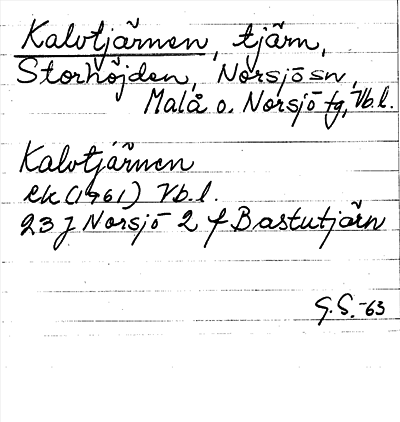 Kalvtjärnen, tjärn,
Storhöjden, Norsjö sn,
Malå o. Norsjö tg, Vb.l.
Kalvtjärnen
ek (1961) Vb.l.
23 J Norsjö 2 f Bastutjärn
G.S. -63